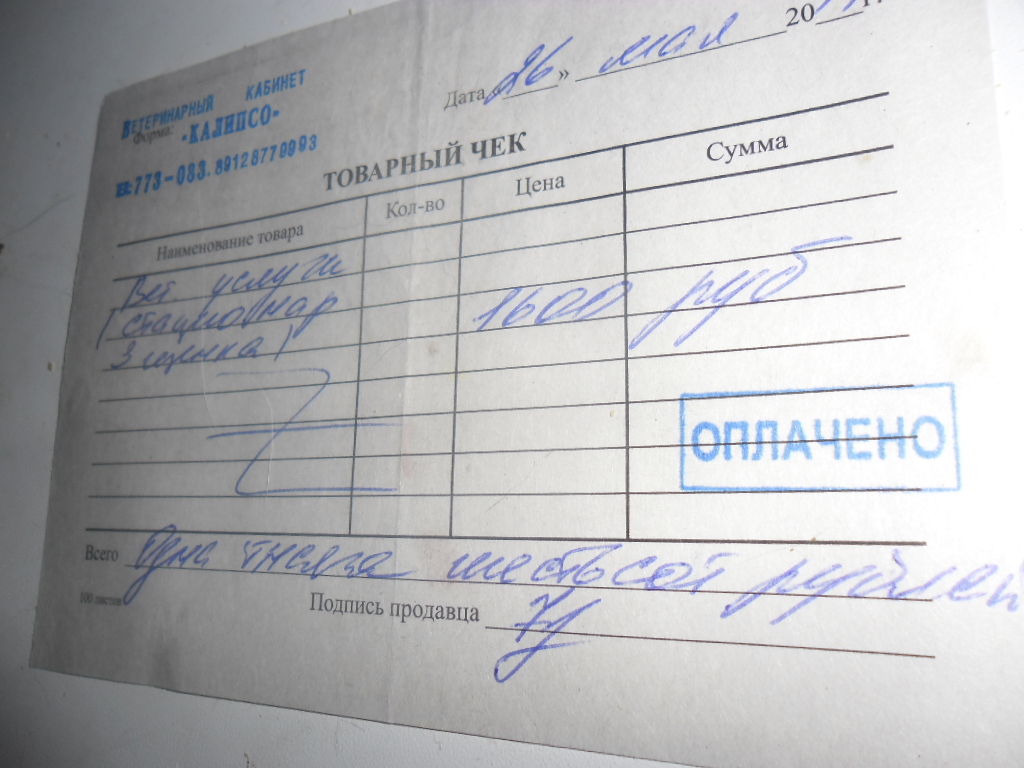 Дата «26» мая 20
ВЕТЕРИНАРНЫЙ КАБИНЕТ
Форма: «КАЛИПСО»
773-083. 89128779993
ТОВАРНЫЙ ЧЕК
Наименование товара Кол-во Цена Сумма
Вет. услуги
(стационар 1600 руб
3 щенка)
ОПЛАЧЕНО
Всего Одна тысяча шестьсот рублей
100 листов
Подпись продавца